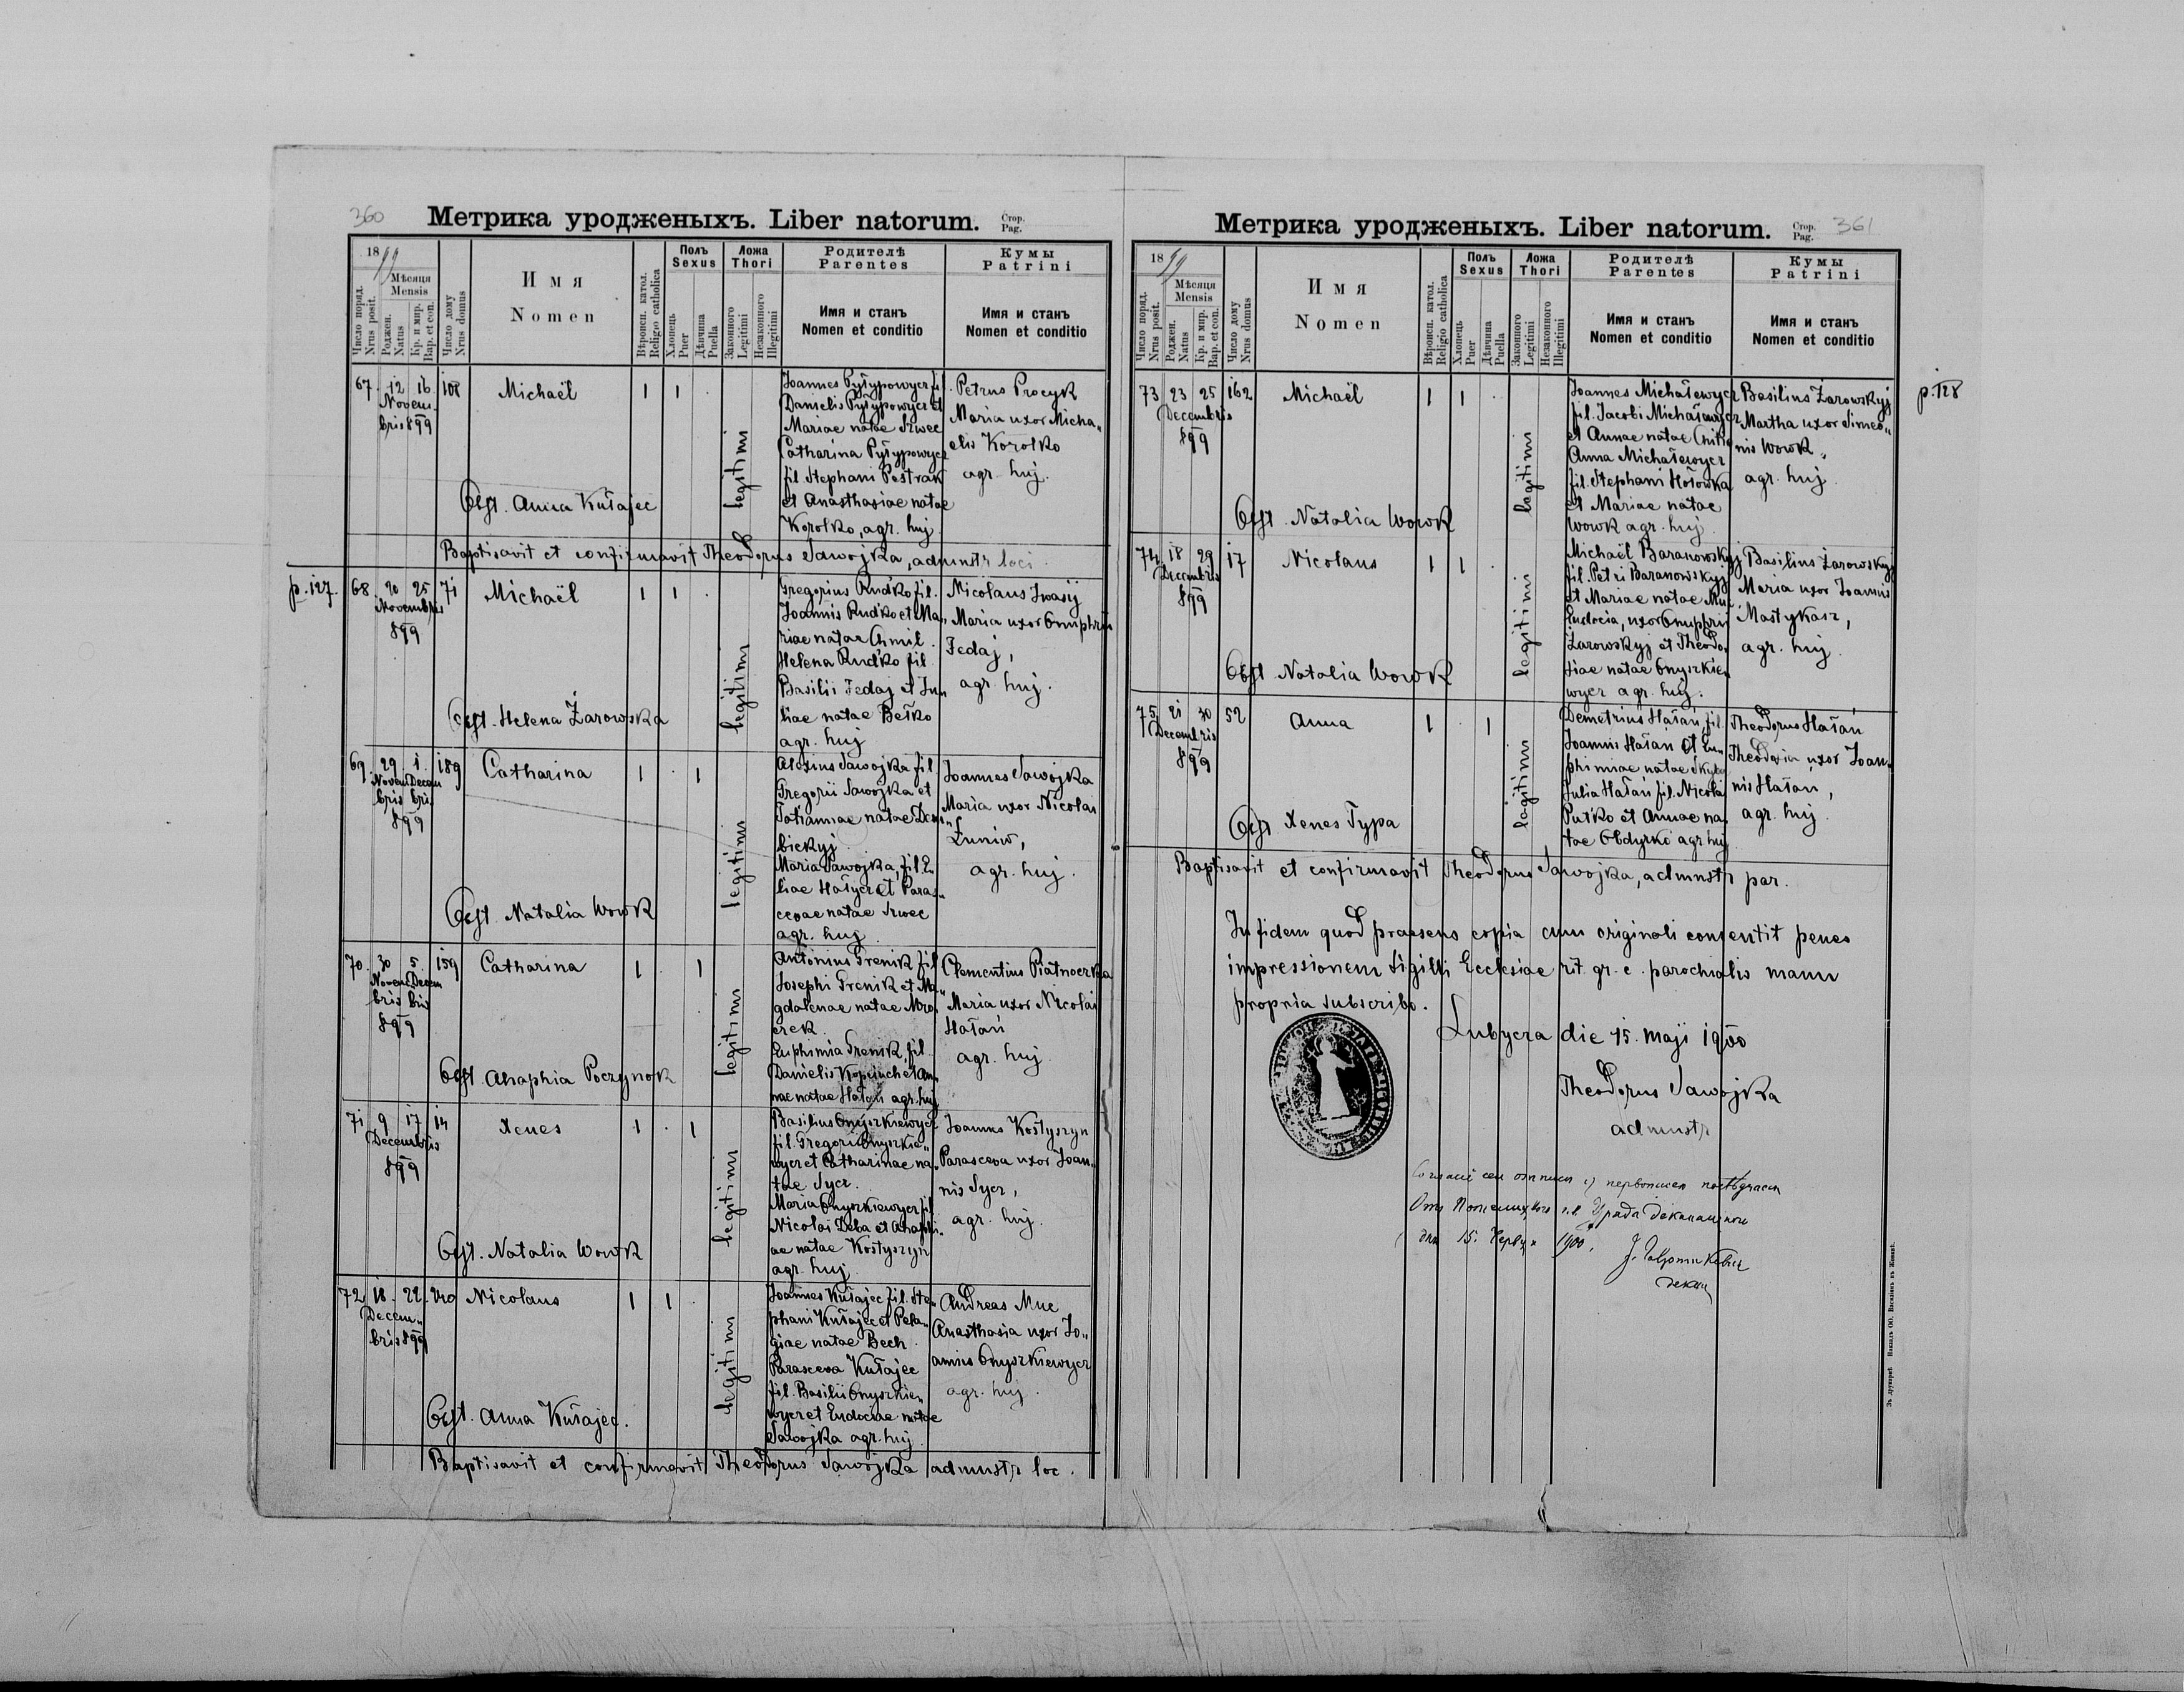 360
Метрика уродженыхъ. Liber natorum.
Стор.
Pag.
1899
Мѣсяця
Mensis
Число поряд.
Nrus posit.
Роджен.
Natus
Кр. и мир.
Bap. et con.
Число дому
Nrus domus
Имя
Nomen
Вѣроисп. катол.
Religio catholica
Полъ
Sexus
Хлопець
Puer
Дѣвчина
Puella
Ложа
Thori
Законного
Legitimi
Незаконного
Illegitimi
Родителѣ
Parentes
Имя и станъ
Nomen et conditio
Кумы
Patrini
Имя и станъ
Nomen et conditio
67. 12 16. 108 Michaël 1 1 .
Novem-
bris 899
legitimi
Joannes Pyłypowycz fil.
Danielis Pyłypowycz et
Mariae natae Szwec
Catharina Pyłypowycz
fil. Stephani Pestrak
et Anasthasiae natae
Korolko, agr. huj
Petrus Procyk
Maria uxor Micha„
elis Korolko
agr. huj.
Obst. Anna Kułajec
Baptisavit et confirmavit Theodorus Sawojka, admnstr loci.
p. 127.
68. 20 25 71 Michaël 1 1 .
Novembris
899
legitimi
Gregorius Rudko fil.
Joannis Rudko et Ma„
riae natae Chmil.
Helena Rudko fil
Basilii Fedaj et Ju„
liae natae Betko
agr. huj
Nicolaus Iwasij
Maria uxor Onuphrii
Fedaj,
agr. huj.
Obst. Helena Żarowska
69. 29 1. 189 Catharina 1 . 1
Novem Decem
bris bris
899
legitimi
Alexius Sawojka fil.
Gregorii Sawojka et
Tatiannae natae Dem„
bickyj
Maria Sawojka, fil. E„
liae Hałycz et Paras„
cevae natae Szwec
agr. huj.
Joannes Sawojka
Maria uxor Nicolai
Łuniw,
agr. huj.
Obst. Natalia Wowk
70. 30 5. 159 Catharina 1 . 1
Novem Decem
bris bris
899
legitimi
Antonius Grenik fil
Josephi Grenik et Ma„
gdalenae natae Mro„
czek
Euphimia Grenik, fil.
Danielis Kopinch et An„
nae natae Hałań agr. huj
Clementius Piatnoczka
Maria uxor Nicolai
Hałań
agr. huj
Obst. Ahaphia Poczynok
71. 9 17 14 Xenes 1 . 1
Decembris
899
legitimi
Basilius Onyszkiewycz
fil. Gregorii Onyszkie„
wycz et Catharinae na„
tae Sycz.
Maria Onyszkiewycz fil
Nicolai Deba et Ahaphi„
ae natae Kostyszyn
agr. huj
Joannes Kostyszyn
Parasceva uxor Joan„
nis Sycz,
agr. huj.
Obst. Natalia Wowk
72. 18. 22. 210 Nicolaus 1 1 .
Decem„
bris 899
legitimi
Joannes Kułajec fil. Ste„
phani Kułajec et Pela„
giae natae Bech.
Parasceva Kułajec
fil. Basilii Onyszkie„
wycz et Eudociae natae
Sawojka agr. huj.
Andreas Muc
Anasthasia uxor Jo„
annis Onyszkiewycz
agr. huj.
Obst. Anna Kułajec.
Baptisavit et confirmavit Theodorus Sawojka admnstr loc.
Метрика уродженыхъ. Liber natorum.
Стор.
Pag.
361
1899
Мѣсяця
Mensis
Число поряд.
Nrus posit.
Роджен.
Natus
Кр. и мир.
Bap. et con.
Число дому
Nrus domus
Имя
Nomen
Вѣроисп. катол.
Religio catholica
Полъ
Sexus
Хлопець
Puer
Дѣвчина
Puella
Ложа
Thori
Законного
Legitimi
Незаконного
Illegitimi
Родителѣ
Parentes
Имя и станъ
Nomen et conditio
Кумы
Patrini
Имя и станъ
Nomen et conditio
p. 128
73 23 25 162 Michaël 1 1 .
Decembris
899
legitimi
Joannes Michałewycz
fil. Jacobi Michałewycz
et Annae natae
Anna Michałewycz
fil. Stephani Hołowka
et Mariae natae
Wowk agr. huj
Basilius Żarowskyj
Martha uxor Simeo„
nis Wowk,
agr. huj.
Obst. Natalia Wowk
74 18 29 17 Nicolaus 1 1 .
Decembris
899
legitimi
Michaël Baranowskyj
fil. Petri Baranowskyj
et Mariae natae Muc
Eudocia, uxor Onuphrii
Żarowskyj et Theodo„
siae natae Onyszkie„
wycz agr. huj.
Basilius Żarowskyj
Maria uxor Joannis
Mastykasz,
agr. huj.
Obst Natalia Wowk
75. 21 30 52 Anna 1 . 1
Decembris
899
legitimi
Demetrius Hałań, fil.
Joannis Hałań et Eu„
phimiae natae Skyba
Julia Hałań fil. Nicolai
Putko et Annae na„
tae Obdyrko agr huj
Theodorus Hałań
Theodosia uxor Joan„
nis Hałań,
agr. huj.
Obst Xenes Typa
Baptisavit et confirmavit Theodorus Sawojka, admnstr par.
In fidem quod praesens copia cum originali consentit penes
impressionem sigilli Ecclesiae rit. gr. c. parochialis manu
propria subscribo.
Lubycza die 15. maji 1900
Theodorus Sawojka
admnstr
дня 15. Червця 1900.
декан
Зъ друкарнѣ Накладъ ОО. Василіянъ въ Жовквѣ.